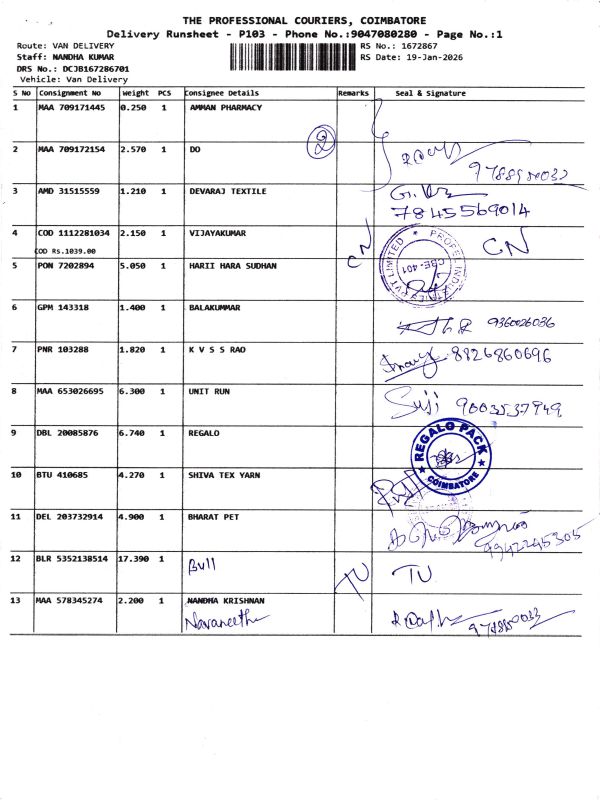 THE PROFESSIONAL COURIERS, COIMBATORE
Delivery Runsheet - P103 - Phone No.:9047080280 - Page No.:1
Route: VAN DELIVERY
Staff: NANDHA KUMAR
DRS No.: DCJB167286701
Vehicle: Van Delivery
RS No.: 1672867
RS Date: 19-Jan-2026
S No Consignment No Weight PCS Consignee Details Remarks Seal & Signature
1 MAA 709171445 0.250 1 AMMAN PHARMACY
2
2 MAA 709172154 2.570 1 DO
3 AMD 31515559 1.210 1 DEVARAJ TEXTILE 7845569014
4 COD 1112281034 2.150 1 VIJAYAKUMAR CN CN
COD Rs.1039.00
PROFEL INDUSTRIES PVT LIMITED
CBE-401
5 PON 7202894 5.050 1 HARII HARA SUDHAN
6 GPM 143318 1.400 1 BALAKUMMAR 9360026036
7 PNR 103288 1.820 1 K V S S RAO 8826860696
8 MAA 653026695 6.300 1 UNIT RUN Suji 9003537949
9 DBL 20085876 6.740 1 REGALO
REGALO PACK
COIMBATORE
10 BTU 410685 4.270 1 SHIVA TEX YARN
11 DEL 203732914 4.900 1 BHARAT PET 9942245305
12 BLR 5352138514 17.390 1 Bull TU TU
13 MAA 578345274 2.200 1 NANDHA KRISHNAN
Navaneetha